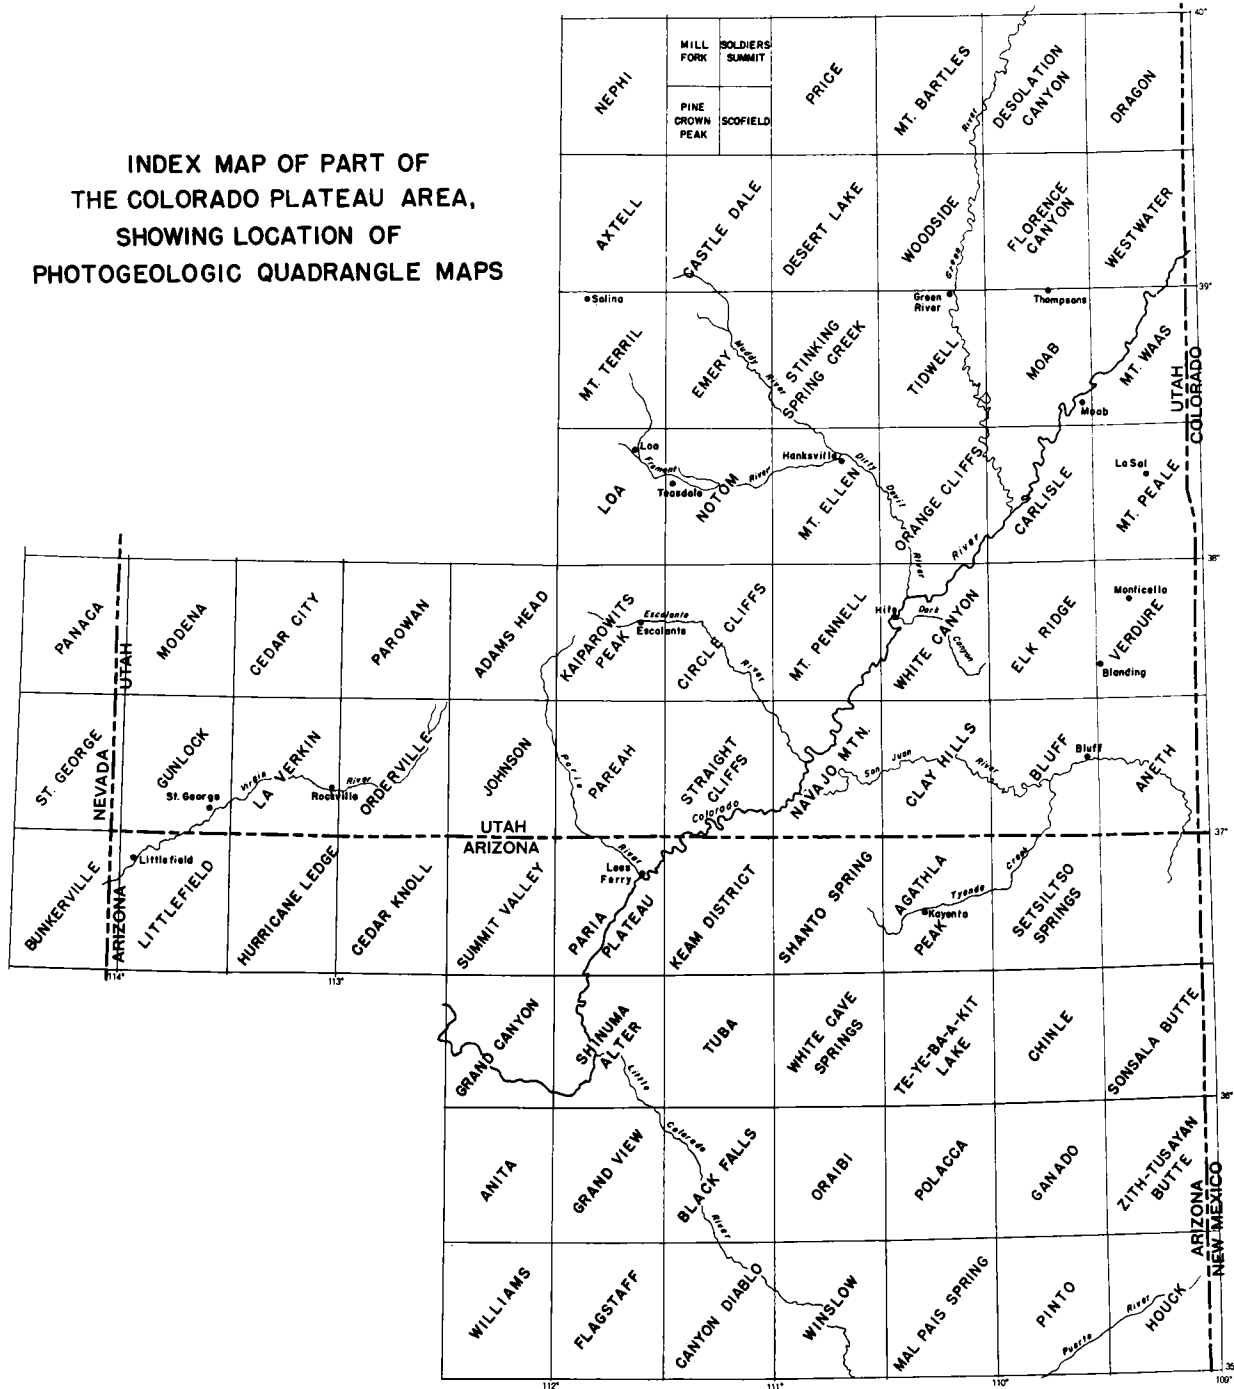 INDEX MAP OF PART OF
THE COLORADO PLATEAU AREA,
SHOWING LOCATION OF
PHOTOGEOLOGIC QUADRANGLE MAPS
40°
NEPHI
MILL
FORK
SOLDIERS
SUMMIT
PINE
CROWN
PEAK
SCOFIELD
PRICE
MT. BARTLES
River
DESOLATION
CANYON
DRAGON
AXTELL
CASTLE DALE
DESERT LAKE
WOODSIDE
Green
FLORENCE
CANYON
WESTWATER
39°
Salina
Green
River
Thompsons
MT. TERRIL
EMERY
Muddy
River
STINKING
SPRING CREEK
TIDWELL
MOAB
Moab
MT. WAAS
UTAH
COLORADO
Loa
Fremont
River
Teasdale
LOA
NOTOM
Hanksville
Dirty
Devil
River
MT. ELLEN
ORANGE CLIFFS
River
CARLISLE
La Sal
MT. PEALE
38°
PANACA
UTAH
MODENA
CEDAR CITY
PAROWAN
ADAMS HEAD
KAIPAROWITS
PEAK
Escalante
Escalante
River
CIRCLE CLIFFS
MT. PENNELL
Hite
Dark
Canyon
WHITE CANYON
ELK RIDGE
Monticello
VERDURE
Blanding
ST. GEORGE
NEVADA
GUNLOCK
St. George
Virgin
River
LA VERKIN
Rockville
ORDERVILLE
JOHNSON
Paria
River
PAREAH
STRAIGHT
CLIFFS
Colorado
NAVAJO MTN.
San Juan
River
CLAY HILLS
BLUFF
Bluff
ANETH
UTAH
ARIZONA
37°
BUNKERVILLE
ARIZONA
Littlefield
LITTLEFIELD
HURRICANE LEDGE
CEDAR KNOLL
SUMMIT VALLEY
Lees
Ferry
PARIA
PLATEAU
KEAM DISTRICT
SHANTO SPRING
AGATHLA
PEAK
Kayenta
Tyende
Creek
SETSILTSO
SPRINGS
114°
113°
GRAND CANYON
SHINUMA
ALTER
TUBA
WHITE CAVE
SPRINGS
TE-YE-BA-A-KIT
LAKE
CHINLE
SONSALA BUTTE
36°
Little
Colorado
River
ANITA
GRAND VIEW
BLACK FALLS
ORAIBI
POLACCA
GANADO
ZITH-TUSAYAN
BUTTE
ARIZONA
NEW MEXICO
WILLIAMS
FLAGSTAFF
CANYON DIABLO
WINSLOW
MAL PAIS SPRING
PINTO
Puerto
River
HOUCK
35°
112°
111°
110°
109°